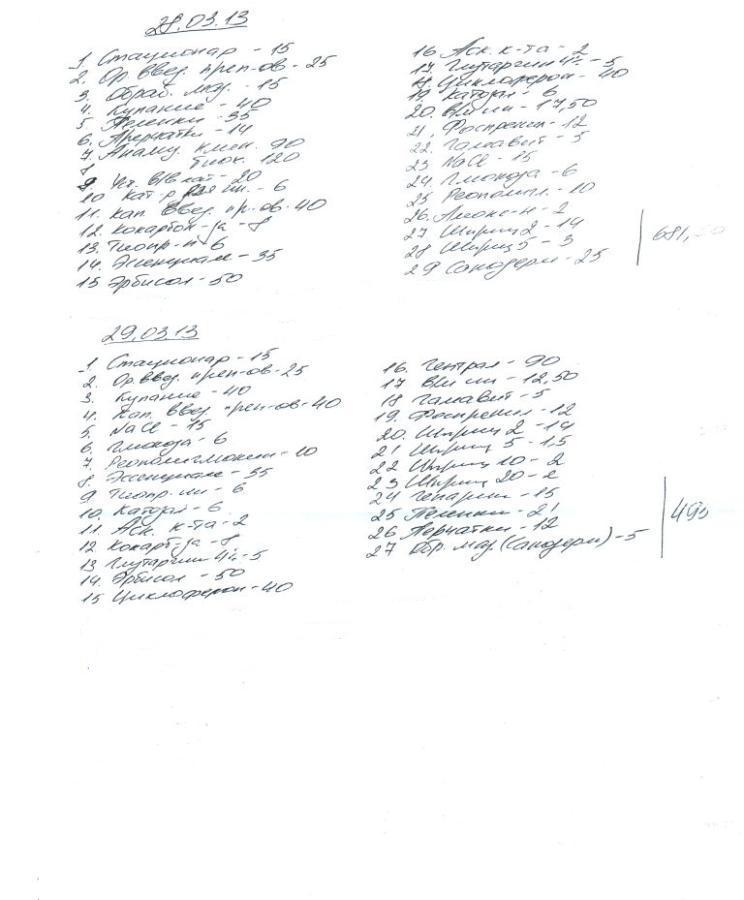 28.03.13
1 Стационар - 15
2. Ор. введ. преп-ов - 25
3. Обраб. мац. - 15
4. Купание - 40
5 Пеленки - 35
6. Перчатки - 14
7. Анализ клин. 90
8 биох. 120
9. Ут. в/в кат - 20
10 Кат-р - 6
11. Кап. введ. пр-ов. 40
12. Кокарбок-за - 8
13. Тиопр-н 6
14. Эссенциале - 35
15 Эрбисол - 50
16. Аск. к-та - 2
17. Глутаргин 4% - 5
18 Циклоферон - 40
19. Катозал - 6
20. 17,50
21. Фоспренил - 12
22. Гамавит - 5
23 NaCl - 15
24. Глюкоза - 6
25 Реополигл. - 10
26. 2
27 Шприц 2 - 14
28 Шприц 5 - 3
29 Санодерм - 25
681,50
29.03.13
1 Стационар - 15
2. Ор. введ. преп-ов - 25
3. Купание - 40
4. Кап. введ. преп-ов - 40
5. NaCl - 15
6. Глюкоза - 6
7. Реополиглюкин - 10
8. Эссенциале - 35
9 Тиопр-ин - 6
10. Катозал - 6
11. Аск. к-та - 2
12 Кокарб-за - 8
13 Глутаргин 4% - 5
14. Эрбисол - 50
15 Циклоферон - 40
16. Гентрал - 90
17 12,50
18 Гамавит - 5
19. Фоспренил - 12
20. Шприц 2 - 14
21 Шприц 5 - 1,5
22 Шприц 10 - 2
23 Шприц 20 - 2
24 Гепарин - 15
25 Пеленки - 21
26 Перчатки - 12
27 Обр. мац. (Санодерм) - 5
495